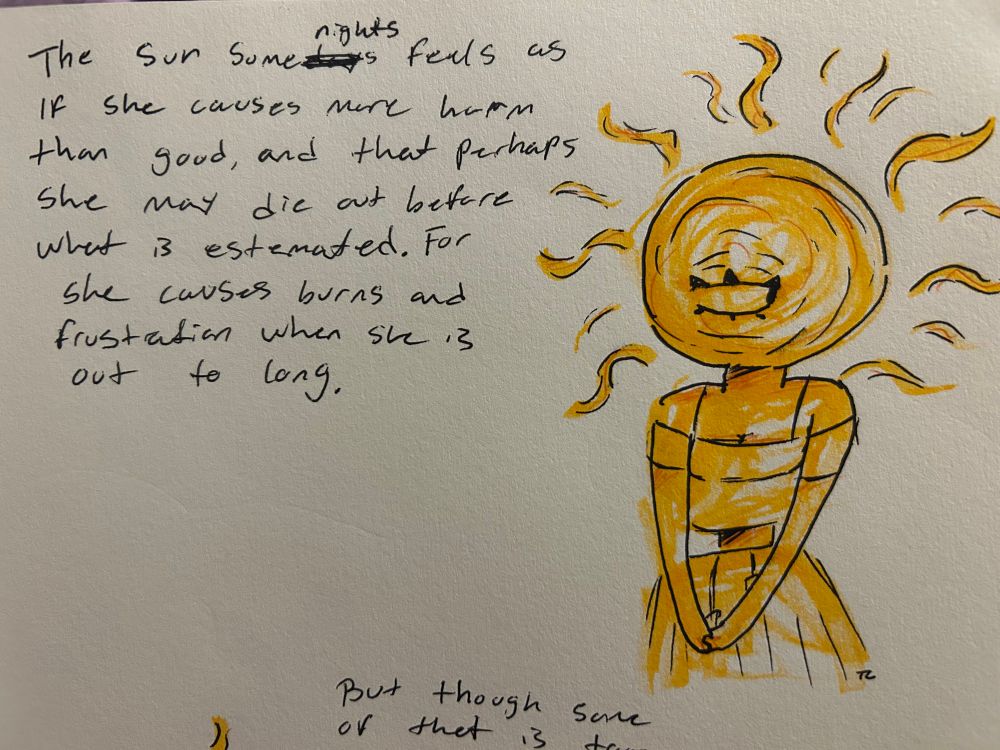 The Sun Some nights feels as
If she causes more harm
than good, and that perhaps
she may die out before
what is estemated. For
she causes burns and
frustration when she is
out to long.
But though some
of that is